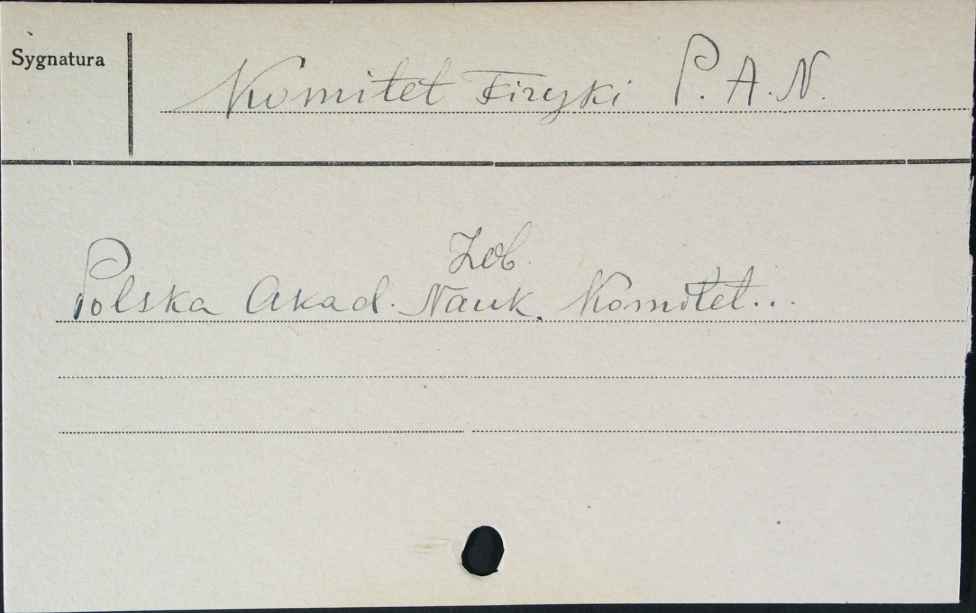 Sygnatura
Komitet Fizyki P.A.N.
Zob.
Polska Akad. Nauk. Komitet...